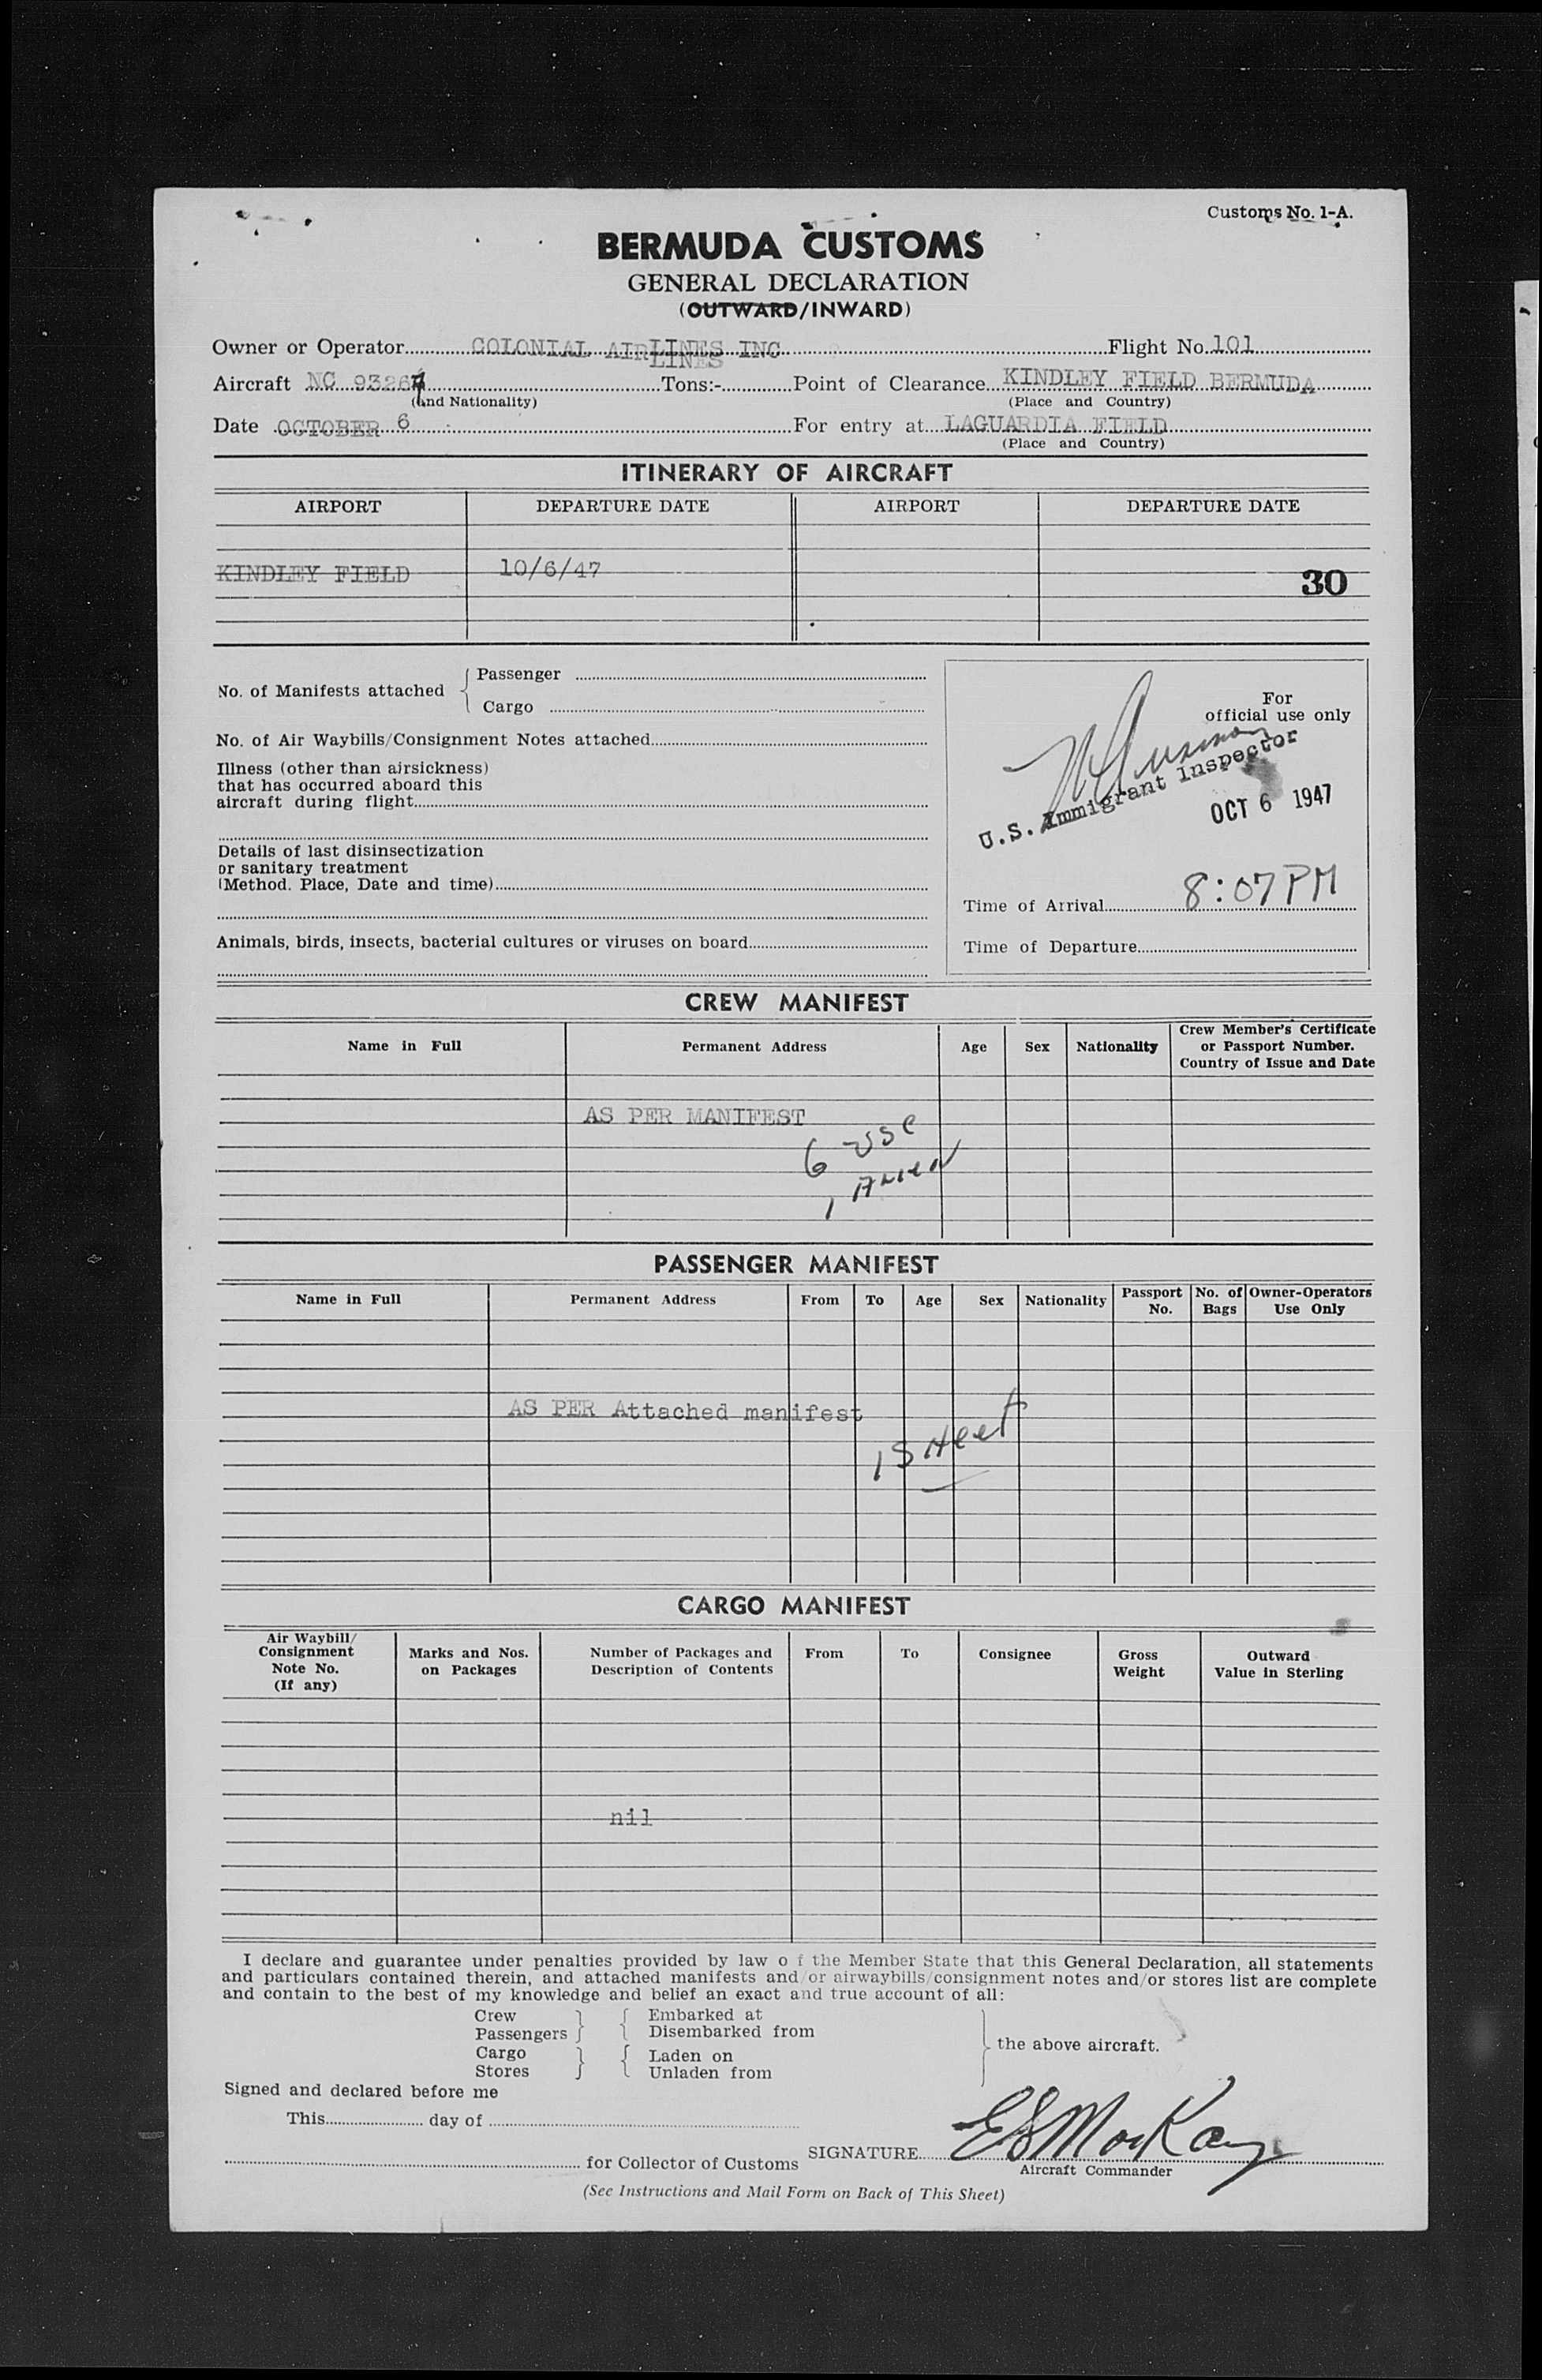 Customs No. 1-A.
BERMUDA CUSTOMS
GENERAL DECLARATION
(OUTWARD/INWARD)
Owner or Operator COLONIAL AIRLINES INC Flight No. 101
Aircraft NC 93267 Tons:- Point of Clearance KINDLEY FIELD BERMUDA
(and Nationality) (Place and Country)
Date OCTOBER 6 For entry at LAGUARDIA FIELD
(Place and Country)
ITINERARY OF AIRCRAFT
AIRPORT DEPARTURE DATE AIRPORT DEPARTURE DATE
KINDLEY FIELD 10/6/47
30
No. of Manifests attached
Passenger
Cargo
No. of Air Waybills/Consignment Notes attached
Illness (other than airsickness)
that has occurred aboard this
aircraft during flight
Details of last disinsectization
or sanitary treatment
(Method. Place, Date and time)
Animals, birds, insects, bacterial cultures or viruses on board
For
official use only
U.S. Immigrant Inspector
OCT 6 1947
Time of Arrival 8:07 PM
Time of Departure
CREW MANIFEST
Name in Full Permanent Address Age Sex Nationality Crew Member's Certificate
or Passport Number.
Country of Issue and Date
AS PER MANIFEST
6 USC
1 Alien
PASSENGER MANIFEST
Name in Full Permanent Address From To Age Sex Nationality Passport No. No. of Bags Owner-Operators Use Only
AS PER Attached manifest
1 Sheet
CARGO MANIFEST
Air Waybill/
Consignment
Note No.
(If any)
Marks and Nos.
on Packages
Number of Packages and
Description of Contents
From To Consignee
Gross
Weight
Outward
Value in Sterling
nil
I declare and guarantee under penalties provided by law o f the Member State that this General Declaration, all statements
and particulars contained therein, and attached manifests and/or airwaybills/consignment notes and/or stores list are complete
and contain to the best of my knowledge and belief an exact and true account of all:
Crew Embarked at
Passengers Disembarked from
Cargo Laden on
Stores Unladen from
the above aircraft.
Signed and declared before me
This day of
for Collector of Customs
SIGNATURE ES MacKay
Aircraft Commander
(See Instructions and Mail Form on Back of This Sheet)